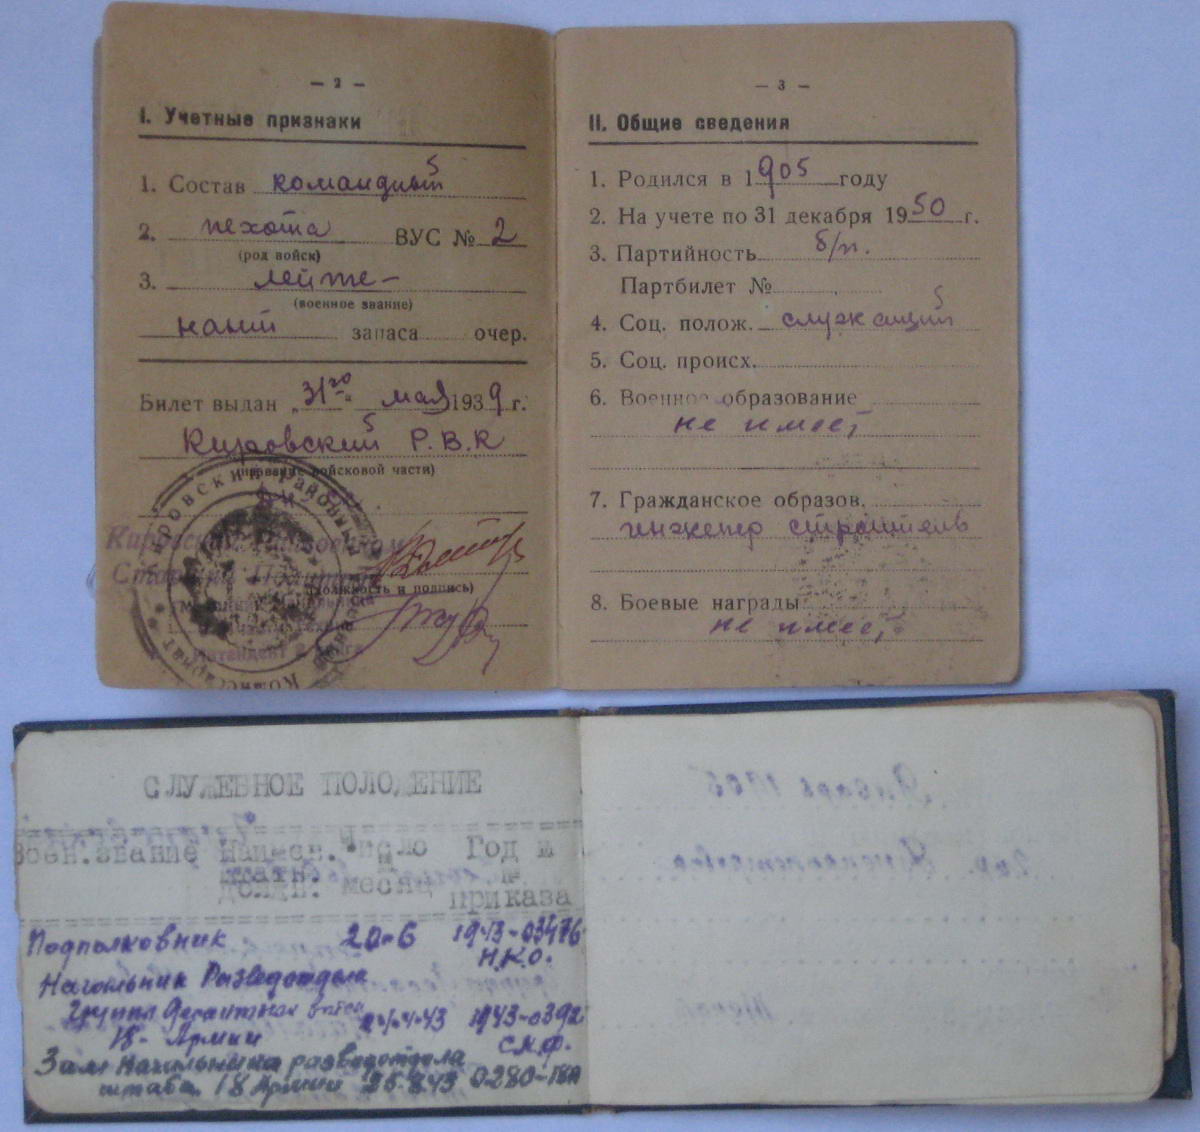 — 2 —
I. Учетные признаки
1. Состав командный
2. пехота ВУС № 2
(род войск)
3. лейте-
(военное звание)
нант запаса очер.
Билет выдан „31го“ мая 1939 г.
Кировский Р.В.К
(название войсковой части)
(должность и подпись)
— 3 —
II. Общие сведения
1. Родился в 1905 году
2. На учете по 31 декабря 1950 г.
3. Партийность б/п.
Партбилет №
4. Соц. полож. служащий
5. Соц. происх.
6. Военное образование
не имеет
7. Гражданское образов.
инженер строитель
8. Боевые награды
не имеет
СЛУЖЕБНОЕ ПОЛОЖЕНИЕ
Воен.звание Число Год и
штатн. и №
долж. месяц приказа
Подполковник 20-6 1943-03476
Н.К.О.
Начальник Разведотдела
Группы Десантных войск 1943-0392
18- Армии С.К.Ф.
Зам Начальника разведотдела
штаба 18 Армии 25.8.43 0280-18А